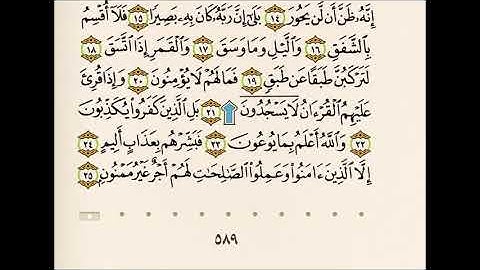 إِنَّهُۥ ظَنَّ أَن لَّن يَحُورَ ١٤ بَلَىٰٓ إِنَّ رَبَّهُۥ كَانَ بِهِۦ بَصِيرًا ١٥ فَلَآ أُقْسِمُ
بِٱلشَّفَقِ ١٦ وَٱلَّيْلِ وَمَا وَسَقَ ١٧ وَٱلْقَمَرِ إِذَا ٱتَّسَقَ ١٨
لَتَرْكَبُنَّ طَبَقًا عَن طَبَقٍ ١٩ فَمَا لَهُمْ لَا يُؤْمِنُونَ ٢٠ وَإِذَا قُرِئَ
عَلَيْهِمُ ٱلْقُرْءَانُ لَا يَسْجُدُونَ ٢١ بَلِ ٱلَّذِينَ كَفَرُوا۟ يُكَذِّبُونَ
٢٢ وَٱللَّهُ أَعْلَمُ بِمَا يُوعُونَ ٢٣ فَبَشِّرْهُم بِعَذَابٍ أَلِيمٍ ٢٤
إِلَّا ٱلَّذِينَ ءَامَنُوا۟ وَعَمِلُوا۟ ٱلصَّٰلِحَٰتِ لَهُمْ أَجْرٌ غَيْرُ مَمْنُونٍۭ ٢٥
٥٨٩